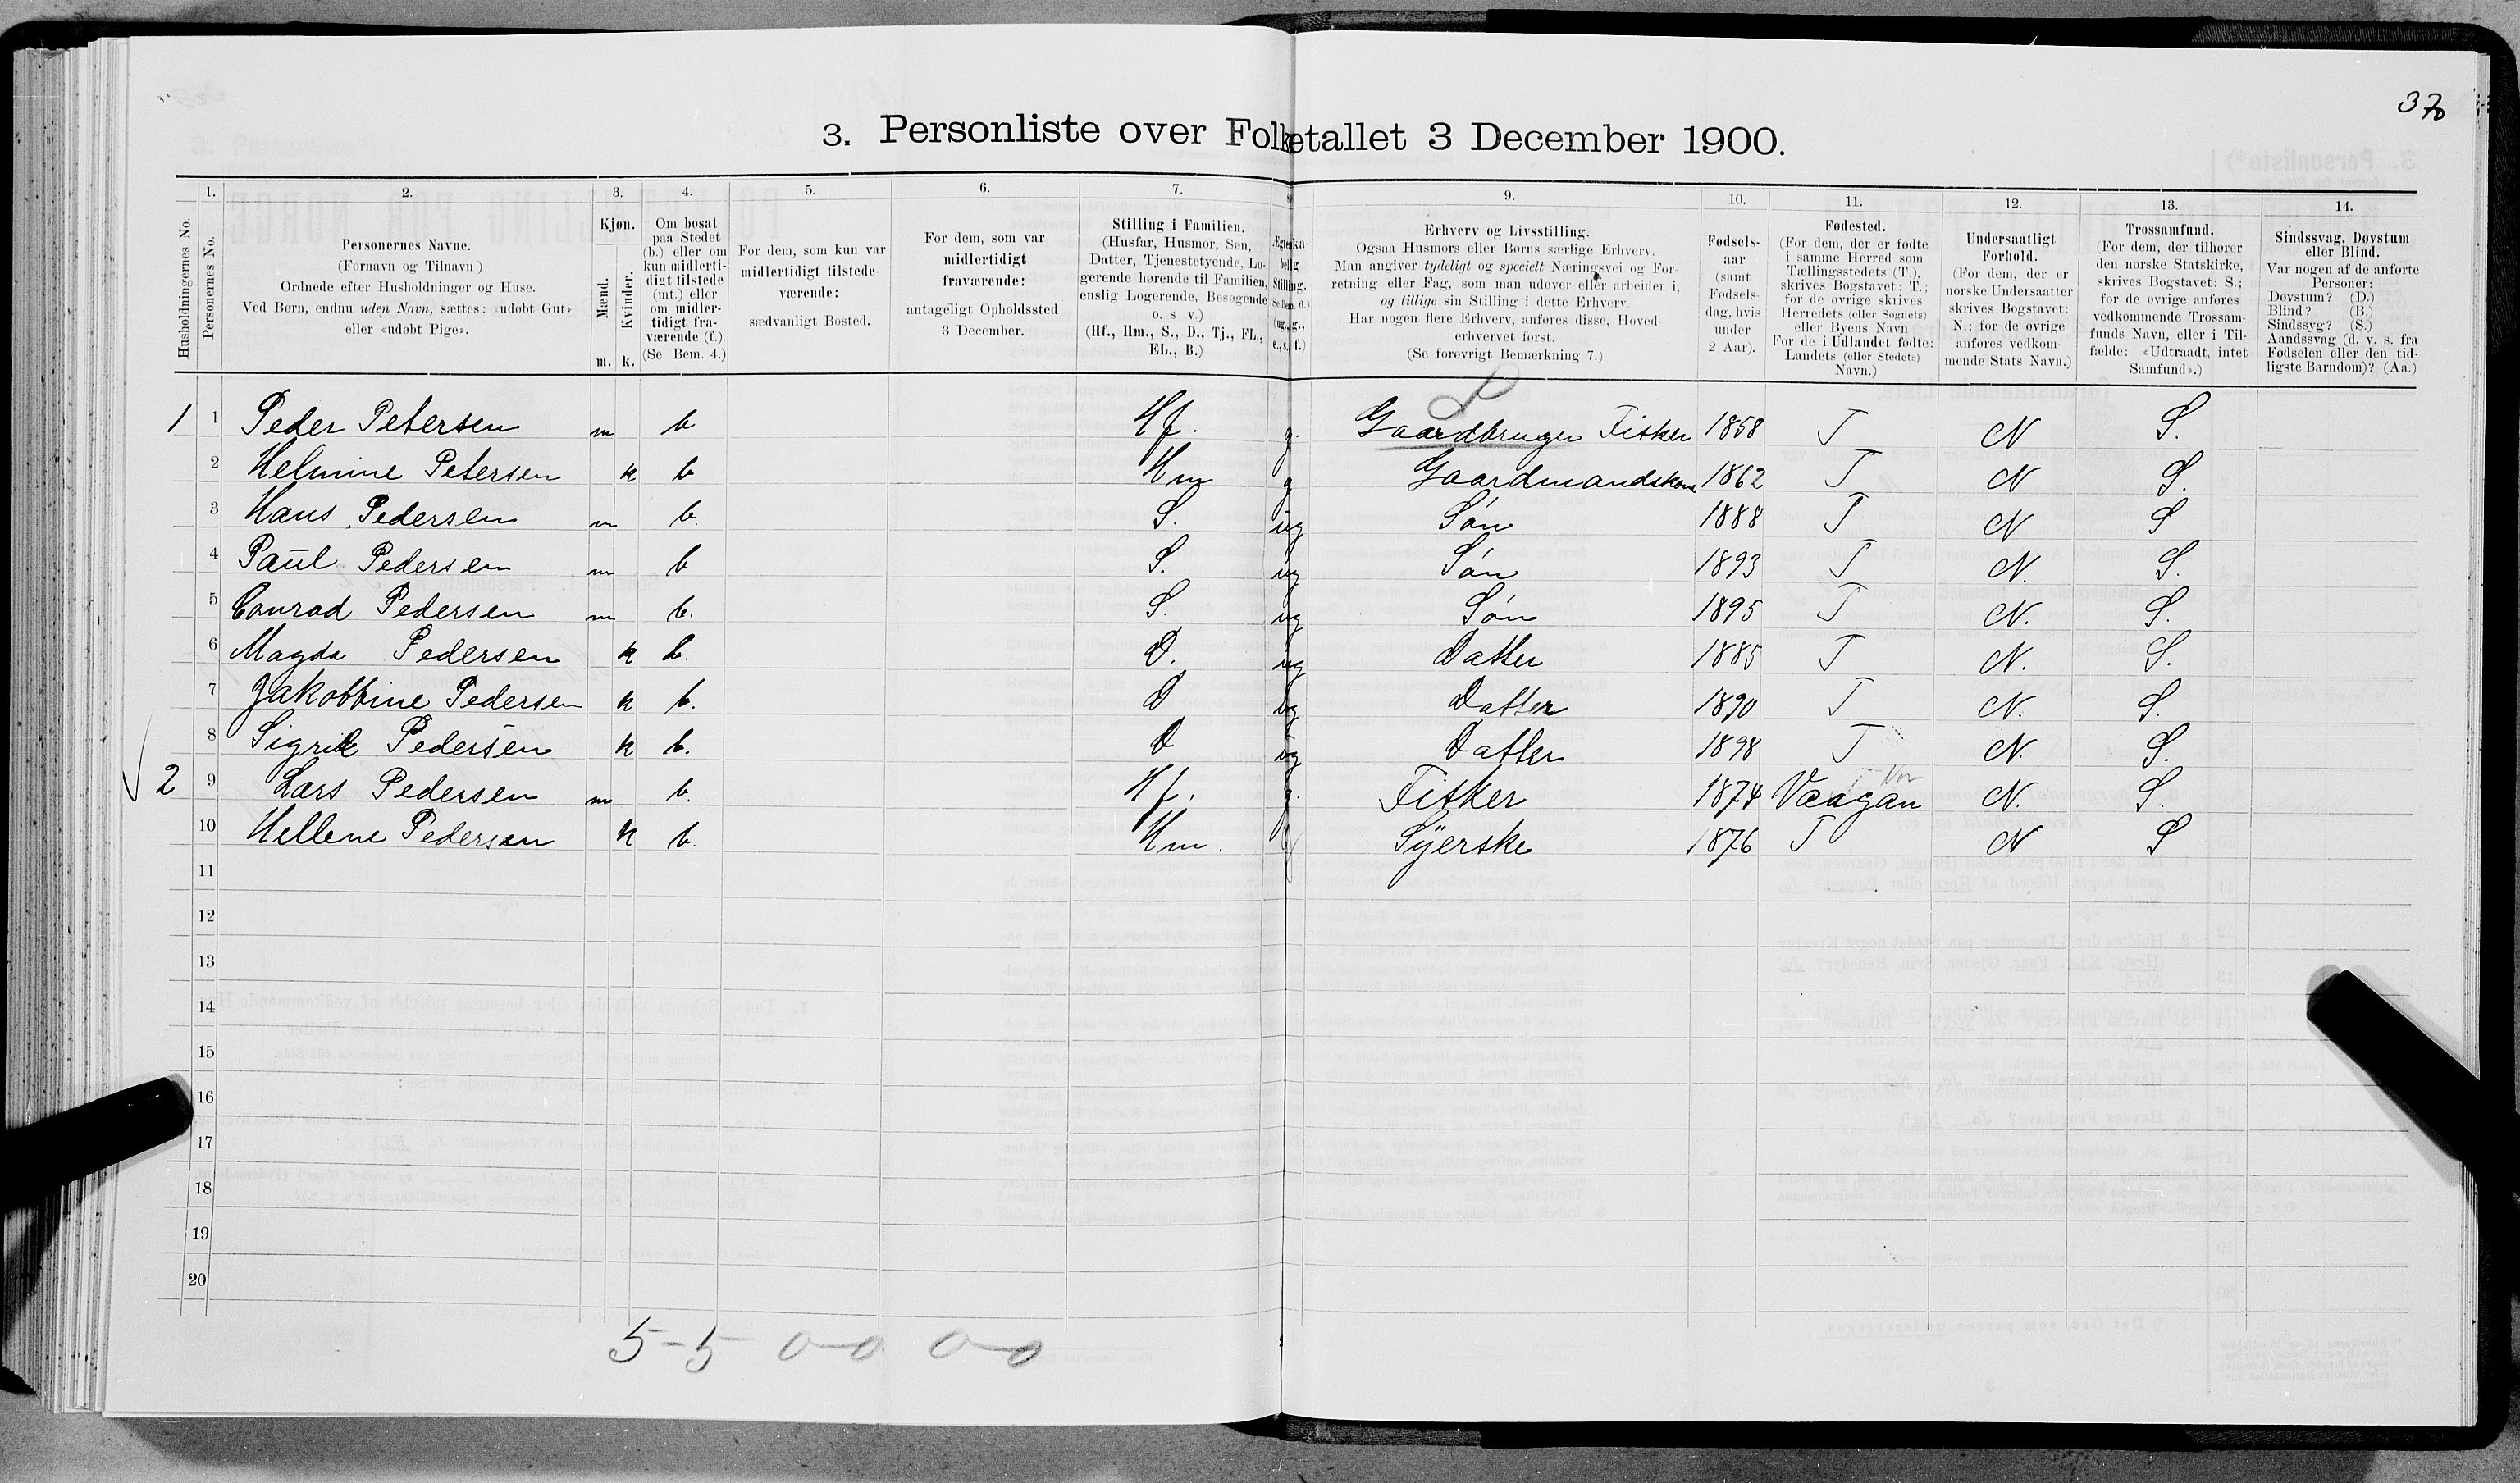 37
3. Personliste over Folketallet 3 December 1900.
Husholdningernes No.
1.
Personernes No.
2.
Personernes Navne.
(Fornavn og Tilnavn)
Ordnede efter Husholdninger og Huse.
Ved Børn, endnu uden Navn, sættes: «udøbt Gut»
eller «udøbt Pige».
3.
Kjøn.
Mænd. Kvinder.
m. k.
4.
Om bosat
paa Stedet
(b.) eller om
kun midlerti-
digt tilstede
(mt.) eller
om midler-
tidigt fra-
værende (f.).
(Se Bem. 4.)
5.
For dem, som kun var
midlertidigt tilstede-
værende:
sædvanligt Bosted.
6.
For dem, som var
midlertidigt
fraværende:
antageligt Opholdssted
3 December.
7.
Stilling i Familien.
(Husfar, Husmor, Søn,
Datter, Tjenestetyende, Lo-
gerende hørende til Familien,
enslig Logerende, Besøgende
o. s. v.)
(Hf., Hm., S., D., Tj., FL.,
EL., B.)
Stilling.
9.
Erhverv og Livsstilling.
Ogsaa Husmors eller Børns særlige Erhverv.
Man angiver tydeligt og specielt Næringsvei og For-
retning eller Fag, som man udøver eller arbeider i,
og tillige sin Stilling i dette Erhverv.
Har nogen flere Erhverv, anføres disse, Hoved-
erhvervet først.
(Se forøvrigt Bemærkning 7.)
10.
Fødsels-
aar
(samt
Fødsels-
dag, hvis
under
2 Aar).
11.
Fødested.
(For dem, der er fødte
i samme Herred som
Tællingsstedets (T.),
skrives Bogstavet: T.;
for de øvrige skrives
Herredets (eller Sognets)
eller Byens Navn
For de i Udlandet fødte:
Landets (eller Stedets)
Navn.)
12.
Undersaatligt
Forhold.
(For dem, der er
norske Undersaatter
skrives Bogstavet:
N.; for de øvrige
anføres vedkom-
mende Stats Navn.)
13.
Trossamfund.
(For dem, der tilhører
den norske Statskirke,
skrives Bogstavet: S.;
for de øvrige anføres
vedkommende Trossam-
funds Navn, eller i Til-
fælde: «Udtraadt, intet
Samfund».)
14.
Sindssvag, Døvstum
eller Blind.
Var nogen af de anførte
Personer:
Døvstum? (D.)
Blind? (B.)
Sindssyg? (S.)
Aandssvag (d. v. s. fra
Fødselen eller den tid-
ligste Barndom)? (Aa.)
1 1 Peder Petersen m b Hf. g. Gaardbruger Fisker 1858 T N S.
2 Helmine Petersen k b Hm g Gaardmandskone 1862 T N S.
3 Hans Pedersen m b. S. ug Søn 1888 T N S
4 Paul Pedersen m b S. ug Søn 1893 T N. S.
5 Conrad Pedersen m b. S. ug Søn 1895 T N. S.
6 Magda Pedersen k b. D. ug Datter 1885 T N. S.
7 Jakobbine Pedersen k b. D ug Datter 1890 T N. S.
8 Sigrid Pedersen k b. D ug Datter 1898 T N. S.
2 9 Lars Pedersen m b. Hf. g. Fisker 1874 Vaagan N. S.
10 Hellene Pedersen k b. Hm. g Syerske 1876 T N S
11
12
13
14
15
16
17
18
19
20
5-5 0-0 0-0